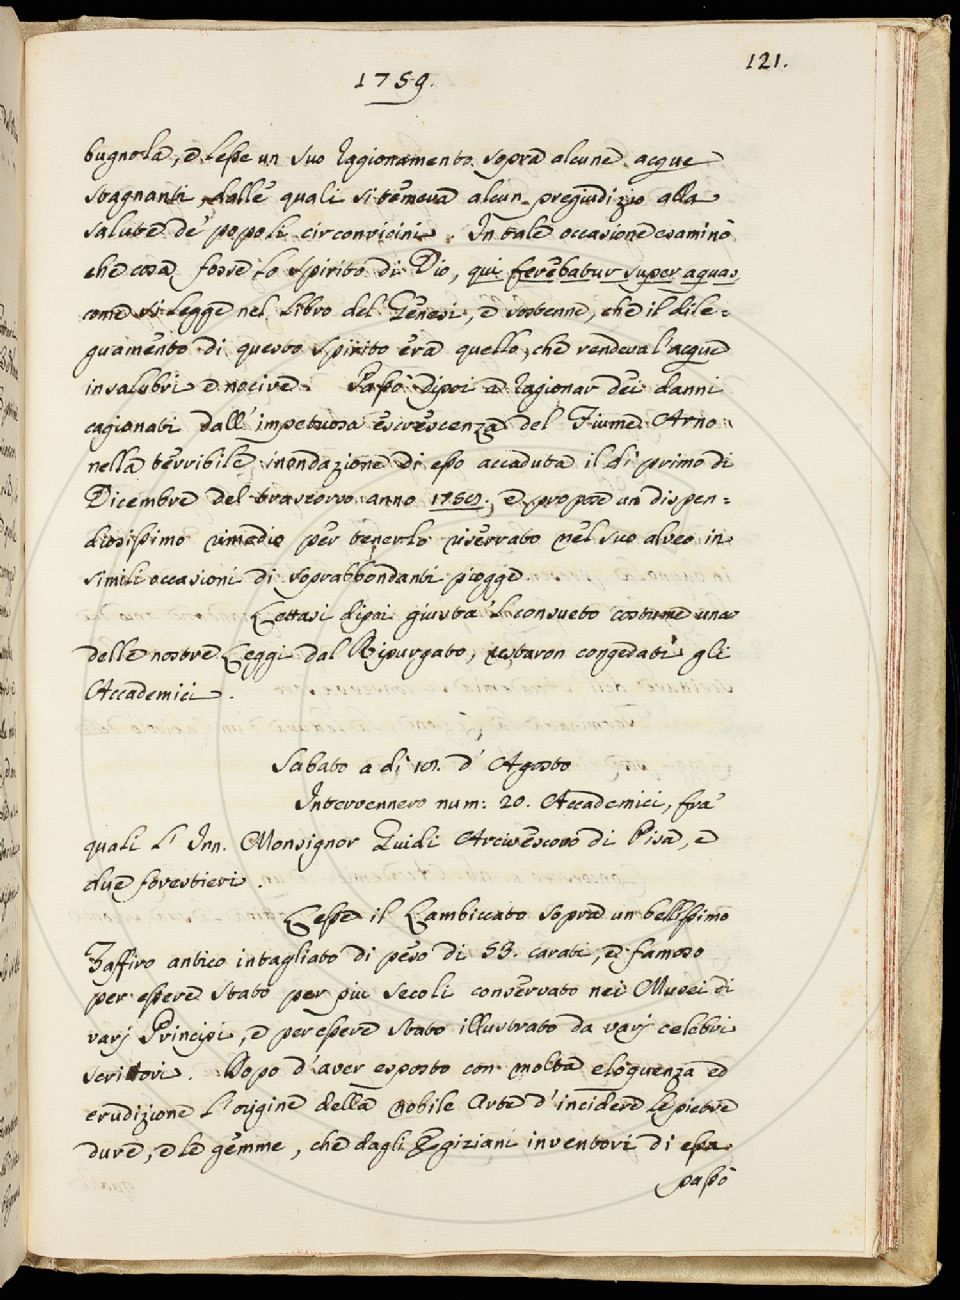 121.
1759.
bugnola, e lesse un suo ragionamento sopra alcune acque
stagnanti, dalle quali si temeva alcun pregiudizio alla
salute de' popoli circonvicini. In tale occasione esaminò
che cosa fosse lo spirito di Dio, qui ferebatur super aquas,
come si legge nel Libro del Genesi, e sostenne, che il dile=
guamento di questo spirito era quello, che rendeva l'acque
insalubri e nocive. Passò dipoi a ragionar dei danni
cagionati dall'impetuosa escrescenza del Fiume Arno
nella terribile inondazione di esso accaduta il dì primo di
Dicembre del trascorso anno e propose un dispen=
diosissimo rimedio per tenerlo riserrato nel suo alveo in
simili occasioni di soprabbondanti piogge.
Lettasi dipoi giusta 'l consueto costume una
delle nostre Leggi dal Ripurgato, restaron congedati gli
Accademici.
Sabato a dì d'Agosto
Intervennero num: 20. Accademici, fra'
quali l' Inn. Monsignor Guidi Arcivescovo di Pisa, e
due forestieri.
Lesse il Lambiccato sopra un bellissimo
Zaffiro antico intagliato di peso di 53. carati, e famoso
per essere stato per più secoli conservato nei Musei di
varj Principi, e per essere stato illustrato da varj celebri
scrittori. Dopo d'aver esposto con molta eloquenza ed
erudizione l'origine della nobile Arte d'incidere le pietre
dure, e le gemme, che dagli Egiziani inventori di essa
passò